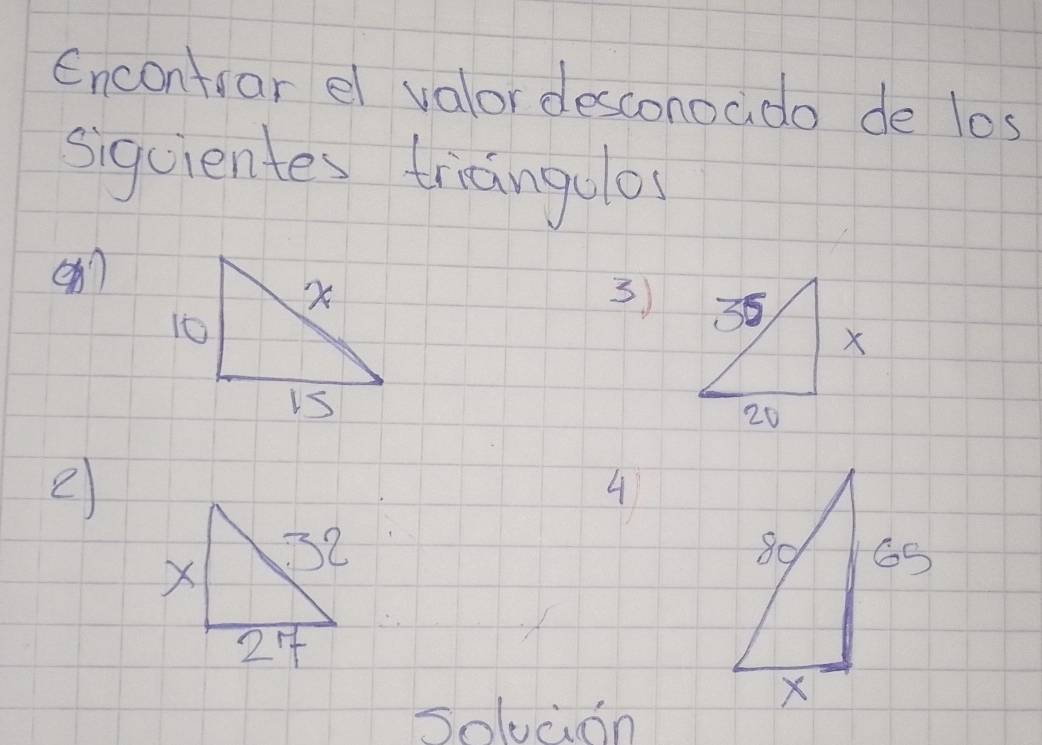 Encontrar el valor desconocido de los
siguientes triángulos
x
10
15
3)
35
x
20
2)
x
32
27
4)
80
65
x
Solución